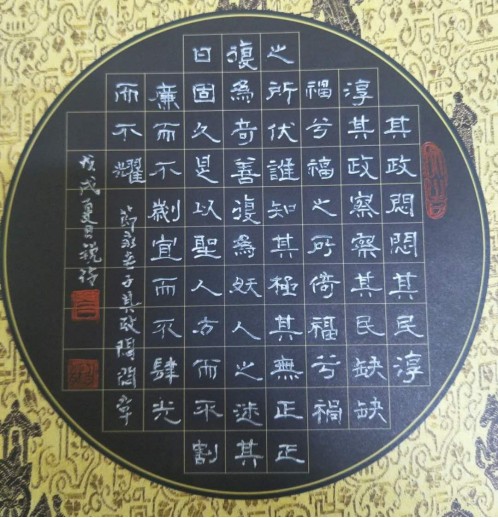 其政悶悶其民淳
淳其政察察其民缺缺
禍兮福之所倚福兮禍
之所伏誰知其極其無正正
復為奇善復為妖人之迷其
日固久是以聖人方而不割
廉而不劌宜而不肆光
而不耀
節錄老子其政悶悶章
戊戌夏月